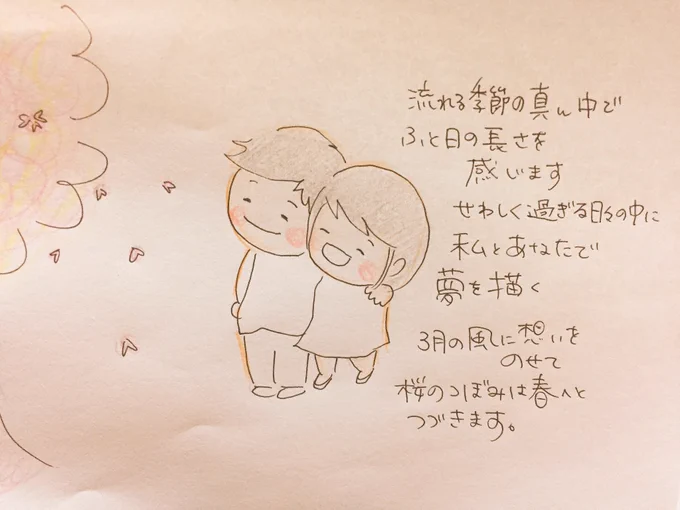 流れる季節の真ん中で
ふと日の長さを
感います
せわしく過ぎる日々の中に
私とあなたで
夢を描く
3月の風に想いを
のせて
桜のつぼみは春へと
つづきます。